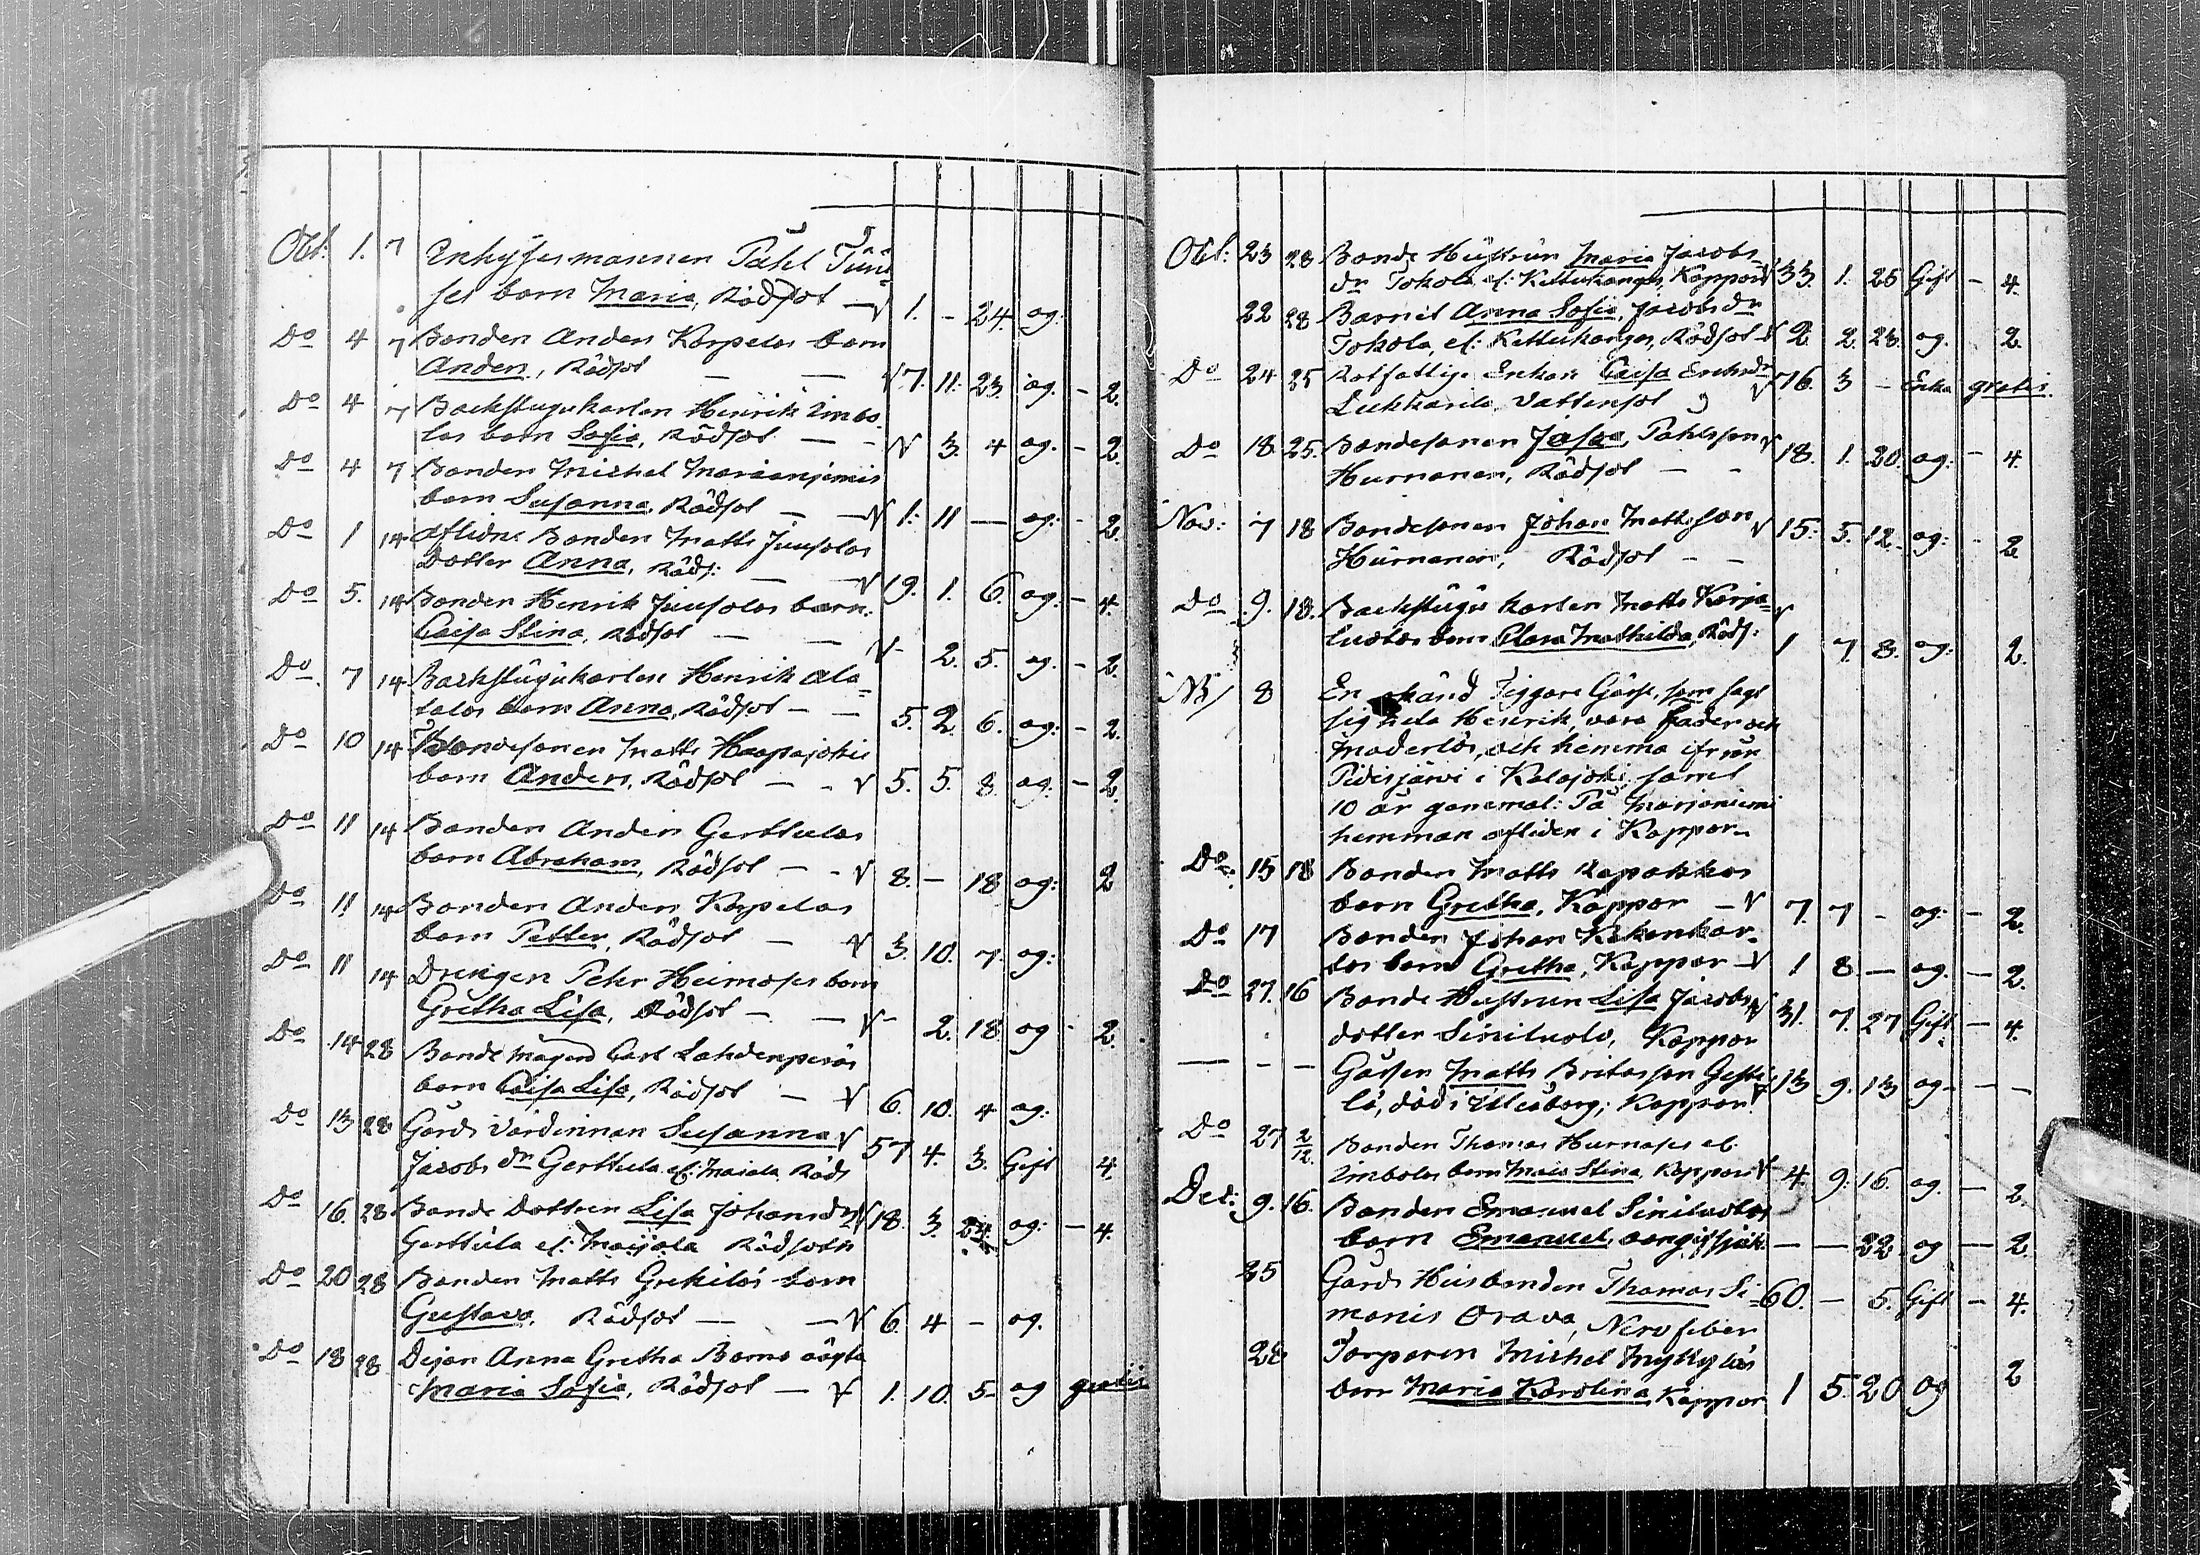 Oct: 1. 7 Inhysesmannen Påhl
ses barn Maria, Rödsot — 1. - 24. og:
Do 4 7 Bonden Anders Korpelas barn
Anders, Rödsot — — 7. 11. 23. og. - 2.
Do 4 7 Backstugukarlen Henrik Imbo
las barn Sofia, Rödsot — - 3. 4 og. - 2.
Do 4 7 Bonden Michel Marianjemis
barn Susanna, Rödsot — — 1. 11 — og: - 2.
Do 1 14 Aflidne Bonden Matts Junsolas
Dotter Anna, Röds: — — 19. 1. 6. og: - 4.
Do 5. 14 Bonden Henrik Junsolas barn
Caisa Stina, Rödsot — — - 2. 5. og. - 2.
Do 7 14 Backstugukarlen Henrik Ala-
talos barn Anna, Rödsot — — 5. 2. 6. og. - 2.
Do 10 14 Bondesonen Matts Haapajokis
barn Anders, Rödsot — - 5. 5. 8. og. - 2.
Do 11 14 Bonden Anders Gerttulas
barn Abraham, Rödsot — - 8. - 18 og: 2
Do 11 14 Bonden Anders Korpelas
barn Petter, Rödsot — 3. 10. 7. og:
Do 11 14 Drengen Pehr Heimoses barn
Gretha Lisa, Rödsot — — - 2. 18 og - 2.
Do 14 28 Bonde mågen Carl Lahdenperäs
barn Caisa Lisa, Rödsot — 6. 10. 4 og:
Do 13 28 Gårds Värdinnan Susanna 57 4. 3. Gift 4.
Jacobs dr Gerttula el: Maiala Röds
Do 16. 28 Bonde Dottren Lisa Johansdr 18. 3. 24. og: - 4.
Gerttula el: Maijala Rödsoth
Do 20 28 Bonden Matts Grekilös barn
Gustava, Rödsot — — 6. 4 - og.
Do 18 28 Dejan Anna Gretha Borns oägta
Maria Sofia, Rödsot — 1. 10. 5- og gratis
Oct: 23 28 Bonde Hustrun Maria Jacobs
dr Tokola, el: Kettukangas, Koppor 33. 1. 25 Gift - 4.
22 28 Barnet Anna Sofia, Jacobs dr
Tokola, el: Kettukangas, Rödsot 2 2. 23. og. 2.
Do 24 25 Rotfattige Enkan Caisa Ericksdr 76. 3 - Enka gratis.
Lukkarila, Vattensot
Do 18. 25. Bondesonen Johan, Påhlsson 18. 1. 20. og: - 4.
Hurnanen, Rödsot — -
Nov: 7 18 Bondesonen Johan Mattsson 15. 5. 12. og: - 2
Hurnanen, Rödsot — -
Do 9. 18. Backstugu karlen Matts Korja-
luotos barn Clara Mathilda, Röds: 1 7. 8. og: 2.
NB/ 8 En okänd Tiggare Gåsse, som sagt
sig heta Henrik, vara fader och
moderlös, och hemma ifrån
Pidisjärvi i Kalajoki, samt
10 år gammal: På Marjaniemi
hemman afliden i Koppor-
Do: 15 18 Bonden Matts Kopakkas
barn Gretha, Koppor — 7. 7 - og: - 2.
Do 17 Bonden Johan Kekonkor-
tos barn Gretha, Koppor — 1 8 — og. — 2.
Do 27. 16 Bonde Hustrun Lisa Jacobs 31. 7. 27 Gift — 4.
dotter Siniluoto, Koppor
— - - Gåssen Matts Britasson Gesti 13 9. 13 og - — —
lä, död i Uleåborg; Koppor.
Do 27 2/12. Bonden Thomas Hurnases el:
Imbolas barn Maia Stina, Koppor 4. 9. 16. og. — 2.
Dec: 9. 16. Bonden Emanuel Siniluotos
barn Emanuel, — — 22. og — 2.
25 Gårds Husbonden Thomas Si- 60. — 5. Gift — 4.
monis Orava, Nervfeber
28 Torparen Michel Myllyläs
barn Maria Karolina, Koppor 1 5. 20 og 2